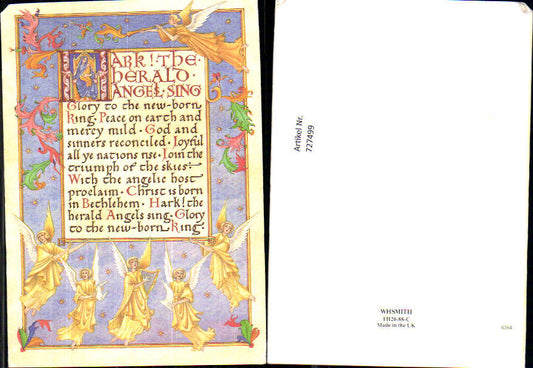 HARK! THE
HERALD
ANGEL·SING
Glory to the new-born
King· Peace on earth and
mercy mild· God and
sinners reconciled· Joyful
all ye nations rise· Join the
triumph of the skies:
With the angelic host
proclaim· Christ is born
in Bethlehem· Hark! the
herald Angels sing· Glory
to the new-born King·
Artikel Nr.
727499
WHSMITH
Made in the UK